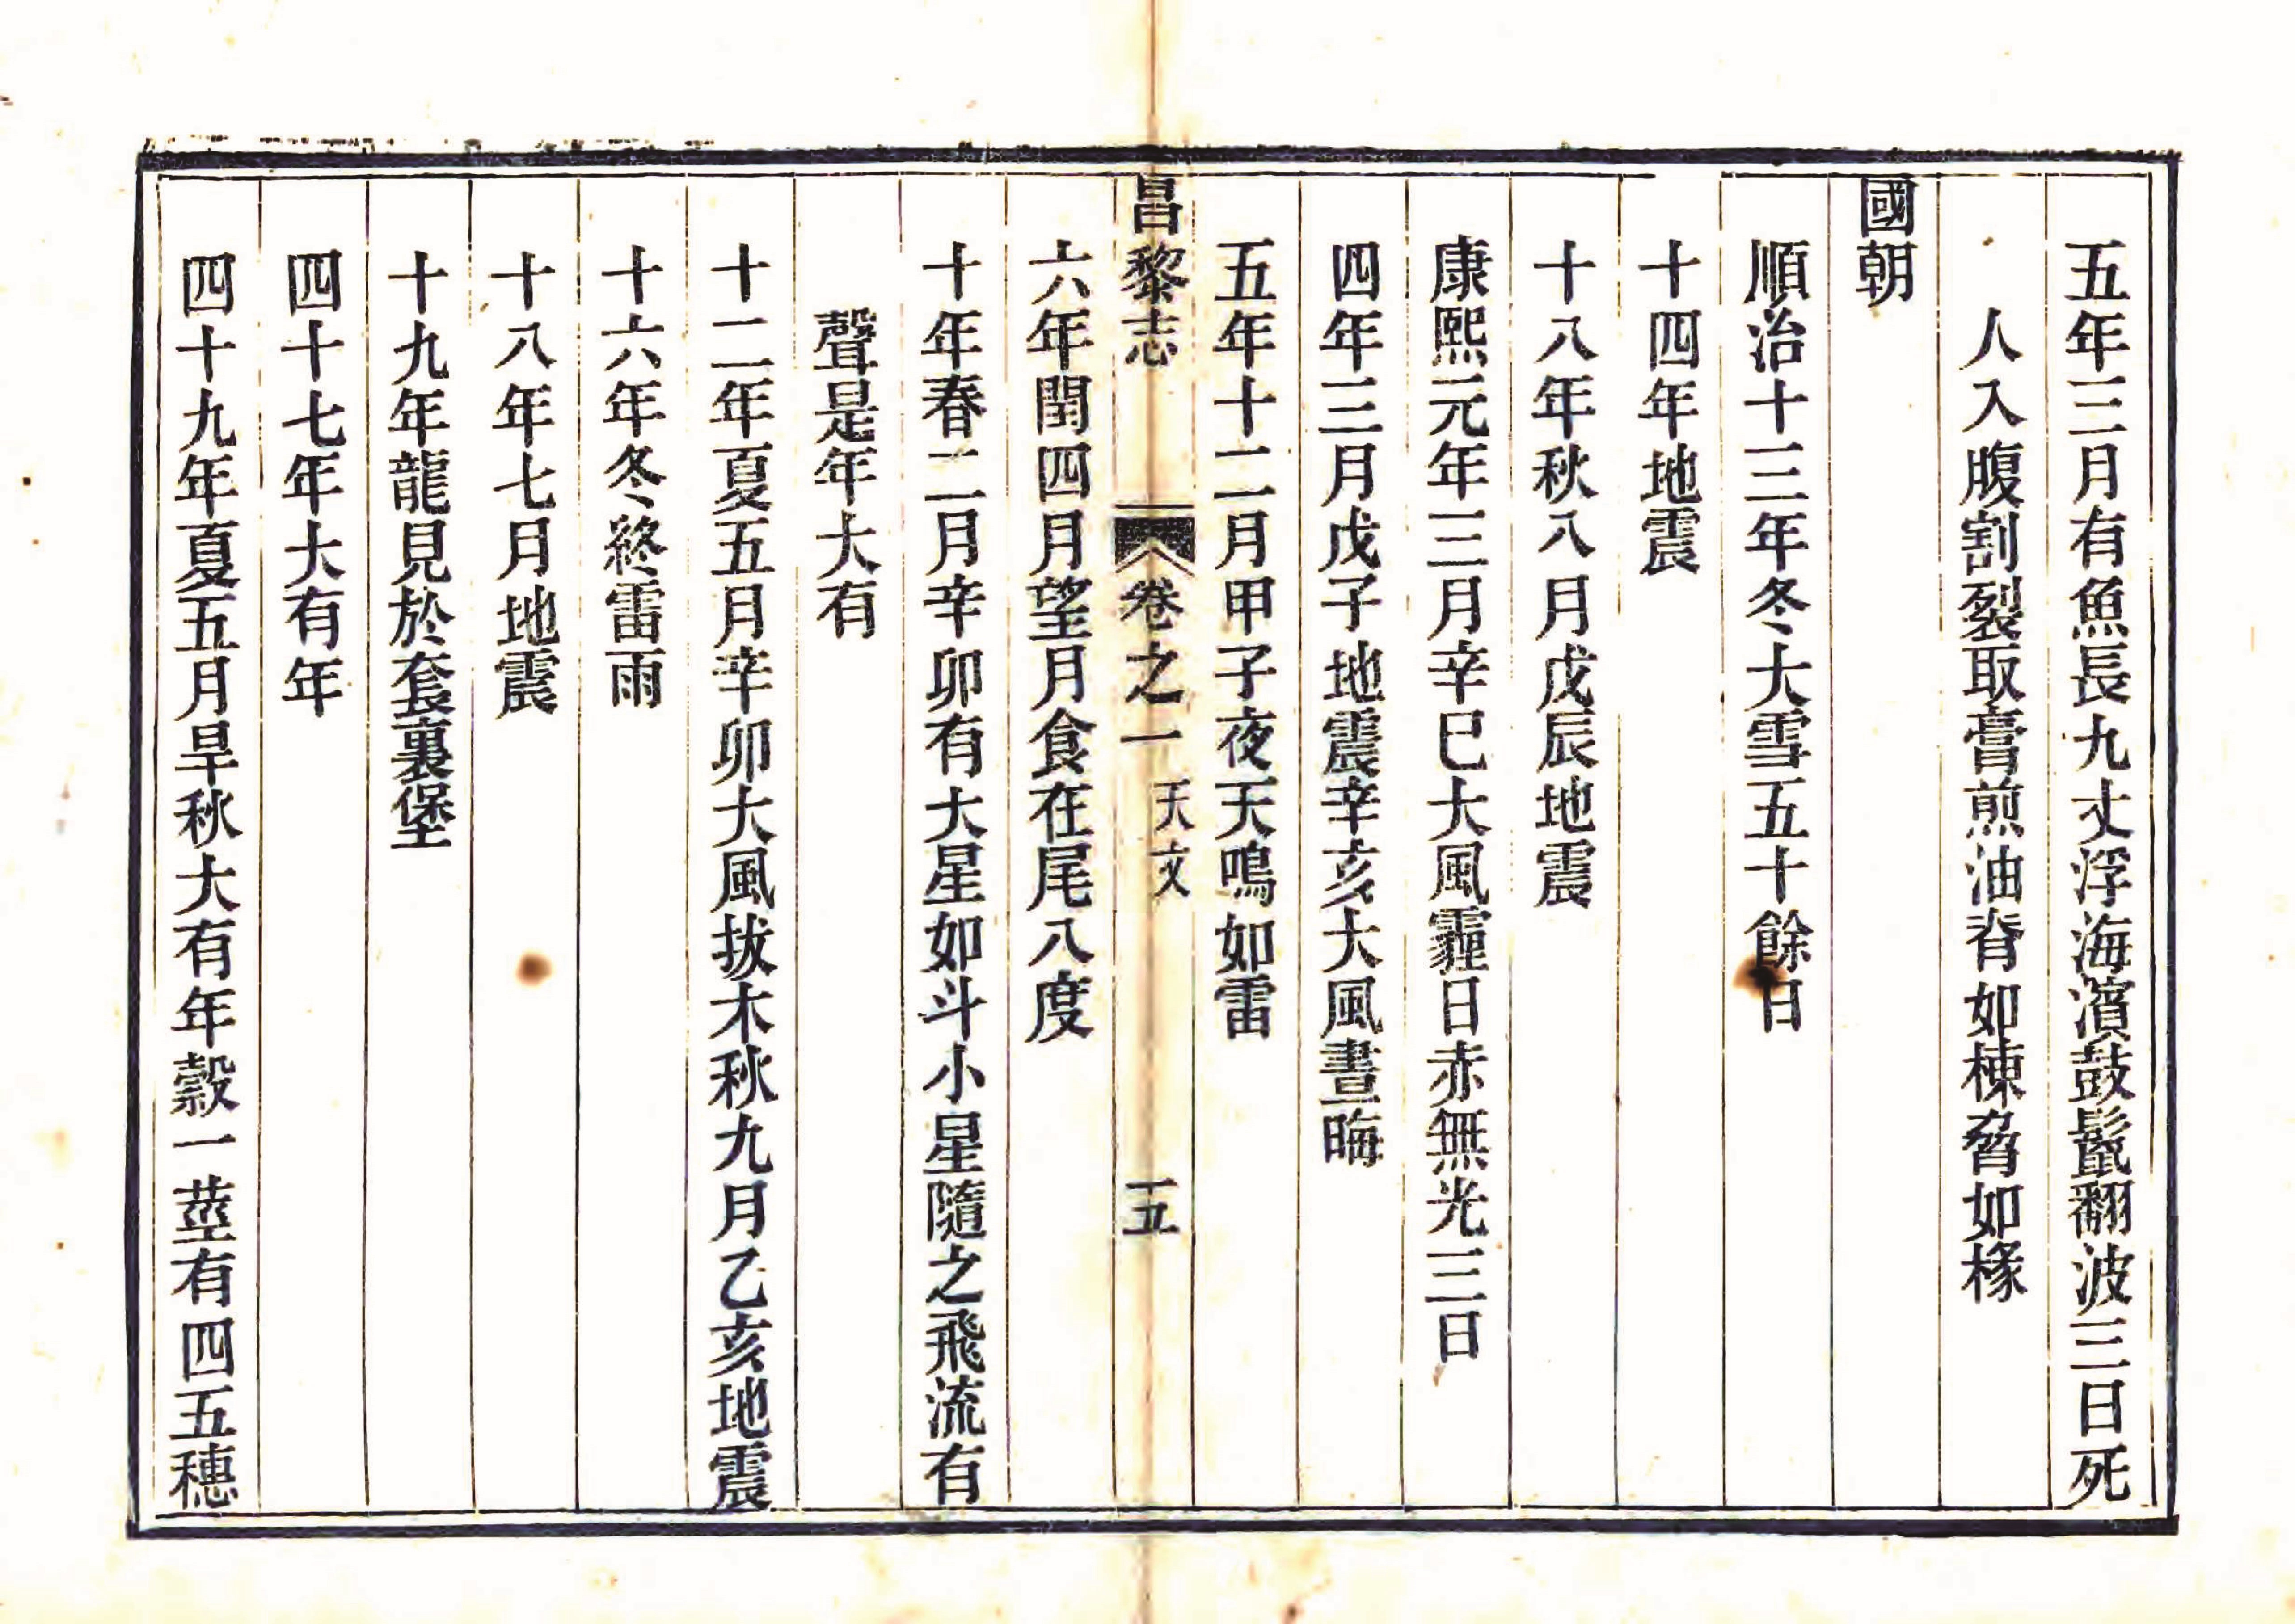 五年三月有魚長九丈浮海濱鼓鬣翻波三日死
人入腹割裂取膏煎油脊如棟脅如椽
國朝
順治十三年冬大雪五十餘日
十四年地震
十八年秋八月戊辰地震
康熙元年三月辛巳大風霾日赤無光三日
四年三月戊子地震辛亥大風晝晦
五年十二月甲子夜天鳴如雷
昌黎志 卷之一 天文 五
六年閏四月望月食在尾八度
十年春二月辛卯有大星如斗小星隨之飛流有
聲是年大有
十二年夏五月辛卯大風拔木秋九月乙亥地震
十六年冬終雷雨
十八年七月地震
十九年龍見於套裏堡
四十七年大有年
四十九年夏五月旱秋大有年穀一莖有四五穗